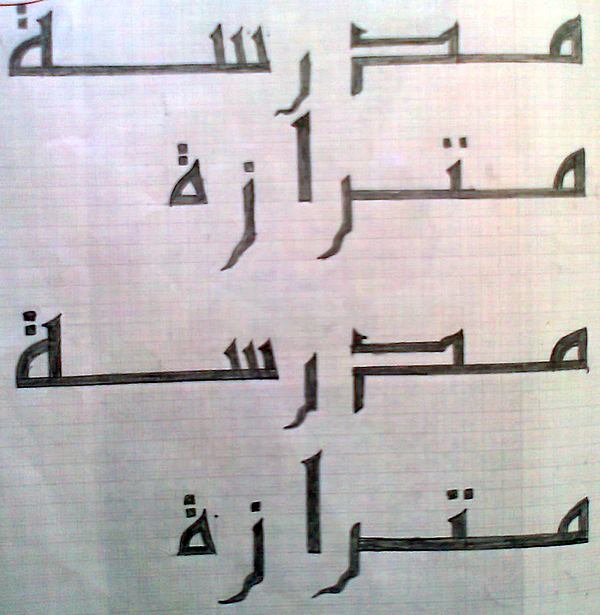 مدرسة
مترازة
مدرسة
مترازة